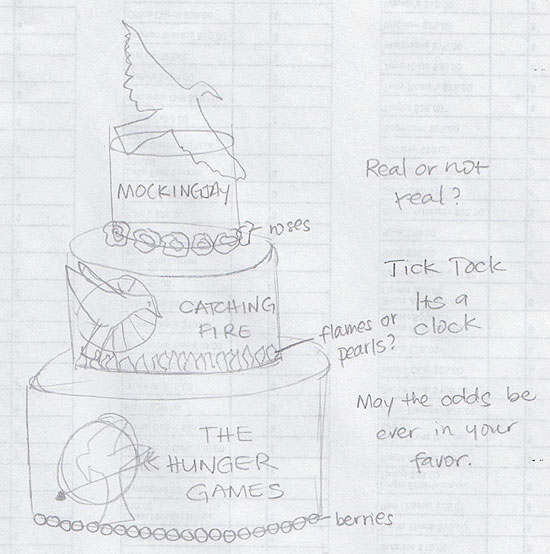 MOCKINGJAY
Real or not
real?
roses
CATCHING
FIRE
flames or
pearls?
Tick Tock
Its a
clock
THE
HUNGER
GAMES
May the odds be
ever in your
favor.
berries